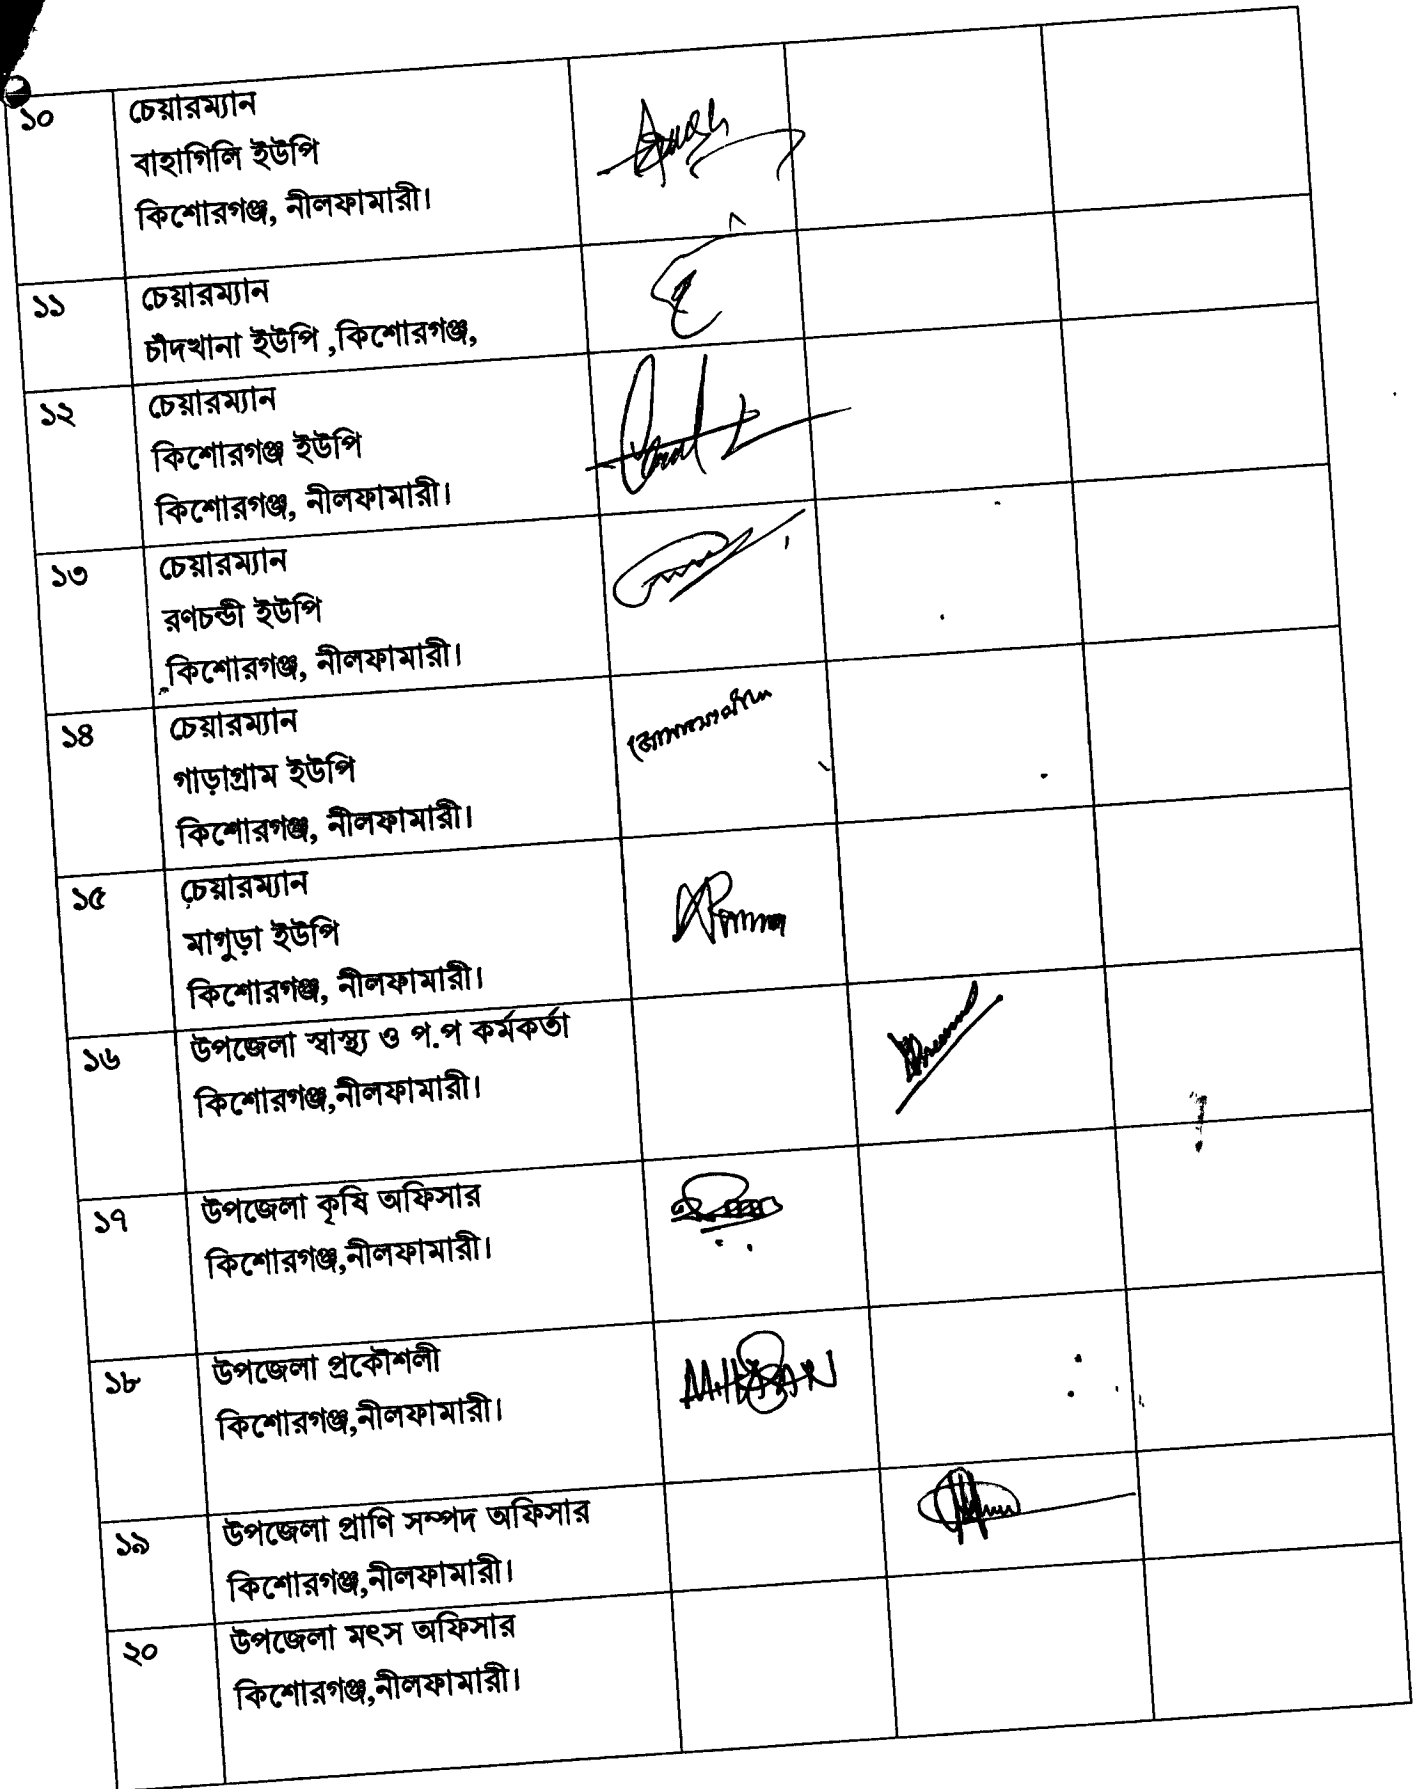 ১০
চেয়ারম্যান
বাহাগিলি ইউপি
কিশোরগঞ্জ, নীলফামারী।
১১
চেয়ারম্যান
চাঁদখানা ইউপি ,কিশোরগঞ্জ,
১২
চেয়ারম্যান
কিশোরগঞ্জ ইউপি
কিশোরগঞ্জ, নীলফামারী।
১৩
চেয়ারম্যান
রণচন্ডী ইউপি
কিশোরগঞ্জ, নীলফামারী।
১৪
চেয়ারম্যান
গাড়াগ্রাম ইউপি
কিশোরগঞ্জ, নীলফামারী।
১৫
চেয়ারম্যান
মাগুড়া ইউপি
কিশোরগঞ্জ, নীলফামারী।
১৬
উপজেলা স্বাস্থ্য ও প.প কর্মকর্তা
কিশোরগঞ্জ,নীলফামারী।
১৭
উপজেলা কৃষি অফিসার
কিশোরগঞ্জ,নীলফামারী।
১৮
উপজেলা প্রকৌশলী
কিশোরগঞ্জ,নীলফামারী।
১৯
উপজেলা প্রাণি সম্পদ অফিসার
কিশোরগঞ্জ,নীলফামারী।
২০
উপজেলা মৎস অফিসার
কিশোরগঞ্জ,নীলফামারী।